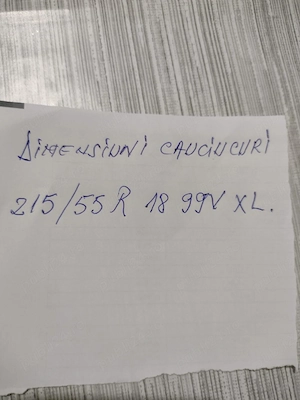 DIMENSIUNI CAUCIUCURI
215/55 R 18 99V XL.